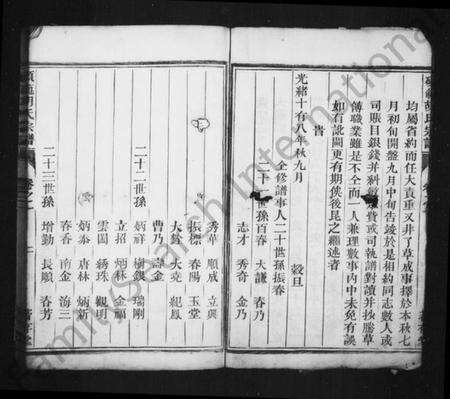 均屬省約而任大責重又非了草成事擇於本秋七
月初旬開盤九月中旬告竣於是相約同志數人或
司賬目銀錢并科費或司執譜對讀并抄謄草
傳職業雖是不全而一人兼理數事內中未免有誤
如有訛闕更有期俟後昆之繼述者
旹
光緒十有八年秋九月 穀旦
仝修譜事人二十世孫振春
二十一世孫百春 大謙 春乃
志才 秀奇 金乃
秀華 順咸 立興
振標 春陽 玉堂
大 大堯 紀鳳
曹乃 高金
二十二世孫 炳祥 樹銀 瑞剛
立招 炳林 金福
雲閣 綉珠 觀明
炳泰 唐林 炳新
春香 南金 海三
二十三世孫 增勤 長順 春芳